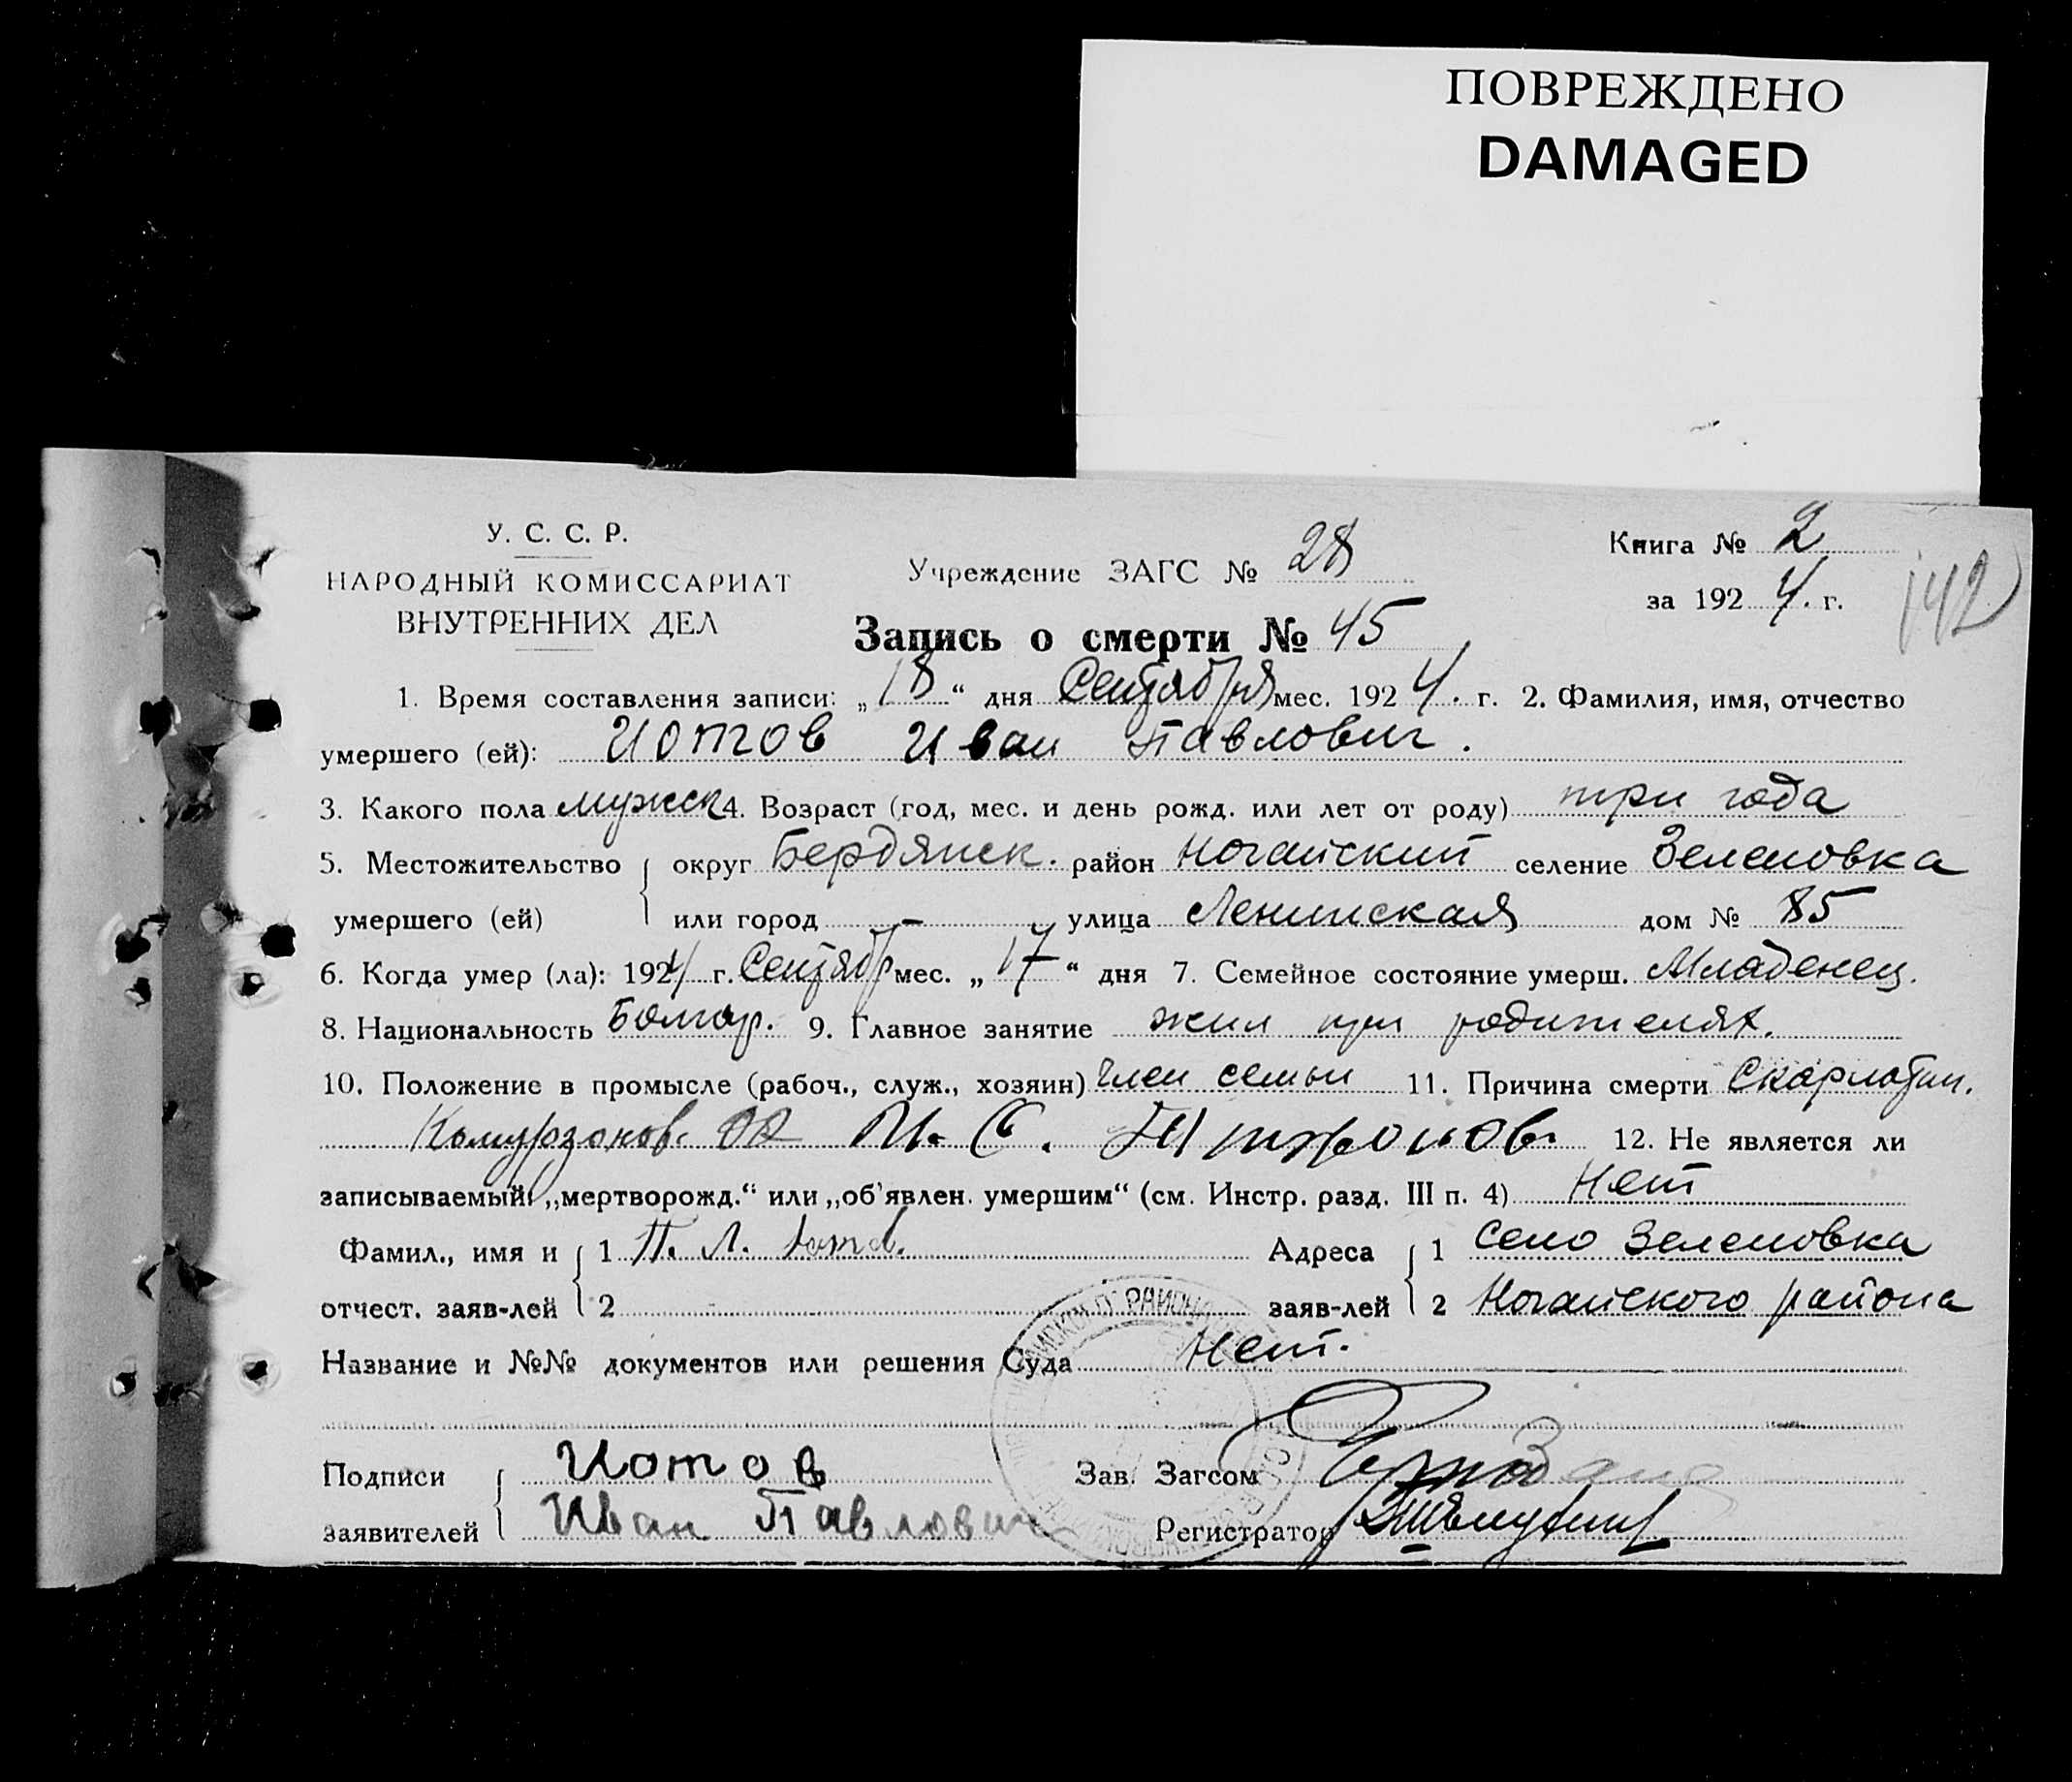 ПОВРЕЖДЕНО
DAMAGED
У. С. С. Р.
НАРОДНЫЙ КОМИССАРИАТ
ВНУТРЕННИХ ДЕЛ
Учреждение ЗАГС № 28
Книга № 2
за 1924. г.
142
Запись о смерти № 45
1. Время составления записи: „18“ дня Сентября мес. 1924. г. 2. Фамилия, имя, отчество
умершего (ей): Иотов Иван Павлович.
3. Какого пола мужск 4. Возраст (год, мес. и день рожд. или лет от роду) три года
5. Местожительство округ Бердянск. район Ногайский селение Зеленовка
умершего (ей) или город - улица Ленинская дом № 85
6. Когда умер (ла): 1924 г. Сентябр мес. „17“ дня 7. Семейное состояние умерш. Младенец.
8. Национальность Болгар. 9. Главное занятие жил при родителях.
10. Положение в промысле (рабоч., служ., хозяин) член семьи 11. Причина смерти Скарлатин.
И. С. 12. Не является ли
записываемый „мертворожд.“ или „об'явлен. умершим“ (см. Инстр. разд. III п. 4) Нет
Фамил., имя и 1 П. Л. Иотов. Адреса 1 село Зеленовка
отчест. заяв-лей 2 заяв-лей 2 Ногайского района
Название и №№ документов или решения Суда Нет.
Подписи Иотов Зав. Загсом
заявителей Иван Павлович Регистратор